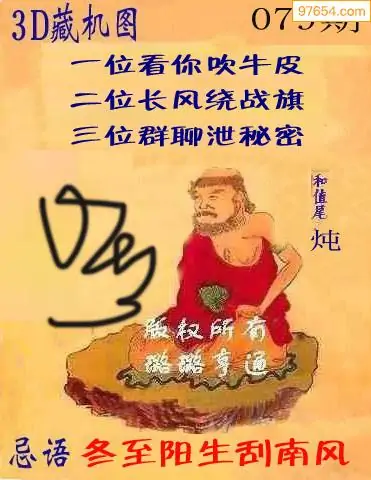 97654.com
3D藏机图
一位看你吹牛皮
二位长风绕战旗
三位群聊泄秘密
和值尾
炖
版权所有
璐璐亨通
忌语 冬至阳生刮南风